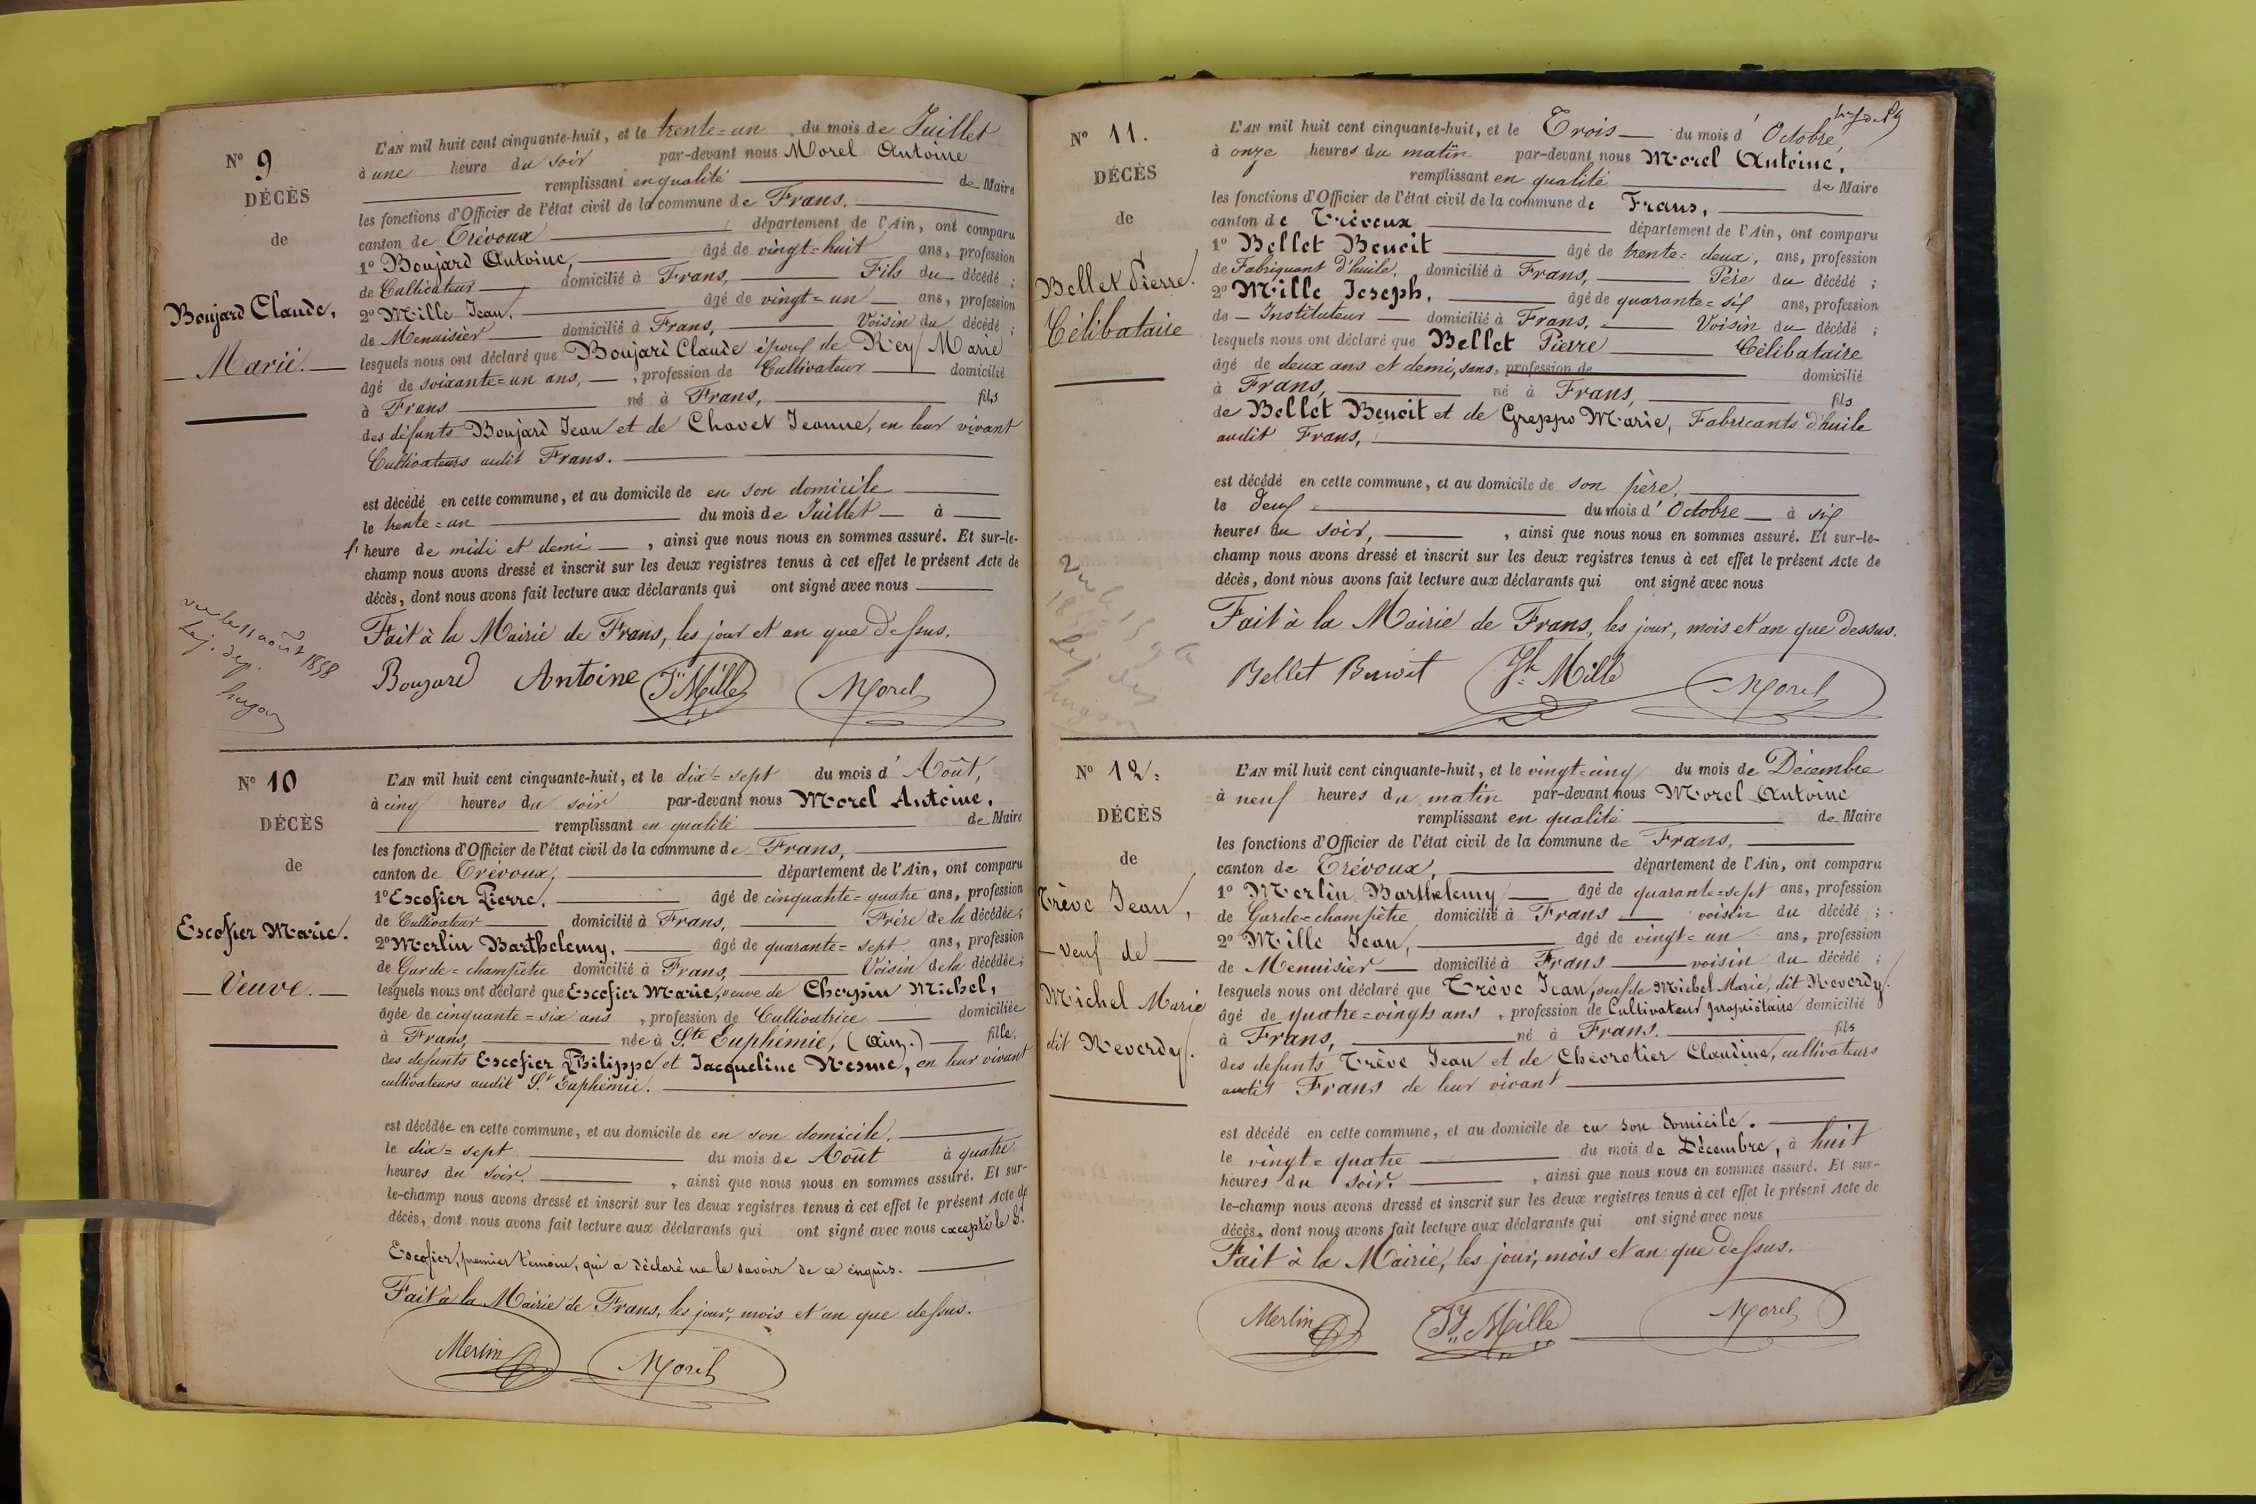 N° 9
DÉCÈS
de
Boujard Claude,
Marié.
vu le 11 août 1858
L'AN mil huit cent cinquante-huit, et le trente-un du mois de Juillet
à une heure du soir par-devant nous Morel Antoine
remplissant en qualité de Maire
les fonctions d'Officier de l'état civil de la commune de Frans.
canton de Trévoux département de l'Ain, ont comparu
1° Boujard Antoine, âgé de vingt-huit ans, profession
de Cultivateur domicilié à Frans, Fils du décédé ;
2° Mille Jean, âgé de vingt-un ans, profession
de Menuisier domicilié à Frans, Voisin du décédé ;
lesquels nous ont déclaré que Boujard Claude époux de Rey Marie
âgé de soixante-un ans, , profession de Cultivateur domicilié
à Frans né à Frans, fils
des défunts Boujard Jean et de Chavet Jeanne, en leur vivant
Cultivateurs audit Frans.
est décédé en cette commune, et au domicile de en son domicile
le trente-un du mois de Juillet à
l'heure de midi et demi , ainsi que nous nous en sommes assuré. Et sur-le-
champ nous avons dressé et inscrit sur les deux registres tenus à cet effet le présent Acte de
décès, dont nous avons fait lecture aux déclarants qui ont signé avec nous
Fait à la Mairie de Frans, les jour et an que dessus.
Boujard Antoine Jn Mille Morel
N° 10
DÉCÈS
de
Escofier Marie.
Veuve.
L'AN mil huit cent cinquante-huit, et le dix-sept du mois d'Août,
à cinq heures du soir par-devant nous Morel Antoine,
remplissant en qualité de Maire
les fonctions d'Officier de l'état civil de la commune de Frans,
canton de Trévoux, département de l'Ain, ont comparu
1° Escofier Pierre, âgé de cinquante-quatre ans, profession
de Cultivateur domicilié à Frans, Frère de la décédée ;
2° Merlin Barthelemy, âgé de quarante-sept ans, profession
de Garde-champêtre domicilié à Frans, Voisin de la décédée ;
lesquels nous ont déclaré que Escofier Marie, veuve de Cherpin Michel,
âgée de cinquante-six ans , profession de Cultivatrice domiciliée
à Frans, née à Ste Euphémie, (Ain.) fille.
des defunts Escofier Philippe et Jacqueline Nesme, en leur vivant
cultivateurs audit St Euphémie.
est décédée en cette commune, et au domicile de en son domicile.
le dix-sept du mois de Août à quatre
heures du soir. , ainsi que nous nous en sommes assuré. Et sur-
le-champ nous avons dressé et inscrit sur les deux registres tenus à cet effet le présent Acte de
décès, dont nous avons fait lecture aux déclarants qui ont signé avec nous excepté le Sr
Escofier, premier témoin, qui a déclaré ne le savoir de ce enquis.
Fait à la Mairie de Frans, les jour, mois et an que dessus.
Merlin Morel
N° 11.
DÉCÈS
de
Bellet Pierre.
Célibataire
L'AN mil huit cent cinquante-huit, et le Trois du mois d'Octobre,
à onze heures du matin par-devant nous Morel Antoine,
remplissant en qualité de Maire
les fonctions d'Officier de l'état civil de la commune de Frans,
canton de Trévoux département de l'Ain, ont comparu
1° Bellet Benoit âgé de trente-deux, ans, profession
de Fabriquant d'huile, domicilié à Frans, Père du décédé ;
2° Mille Joseph, âgé de quarante-six ans, profession
de Instituteur domicilié à Frans. Voisin du décédé ;
lesquels nous ont déclaré que Bellet Pierre Célibataire
âgé de deux ans et demi, sans, profession de domicilié
à Frans, né à Frans, fils
de Bellet Benoit et de Greppo Marie, Fabricants d'huile
audit Frans,
est décédé en cette commune, et au domicile de son père,
le deux du mois d'Octobre à six
heures du soir, , ainsi que nous nous en sommes assuré. Et sur-le-
champ nous avons dressé et inscrit sur les deux registres tenus à cet effet le présent Acte de
décès, dont nous avons fait lecture aux déclarants qui ont signé avec nous
Fait à la Mairie de Frans, les jour, mois et an que dessus.
Bellet Benoit Jh Mille Morel
N° 12.
DÉCÈS
de
Trève Jean,
veuf de
Michel Marie
dit Neverdy.
L'AN mil huit cent cinquante-huit, et le vingt-cinq du mois de Décembre
à neuf heures du matin par-devant nous Morel Antoine
remplissant en qualité de Maire
les fonctions d'Officier de l'état civil de la commune de Frans,
canton de Trévoux, département de l'Ain, ont comparu
1° Merlin Barthelemy âgé de quarante-sept ans, profession
de Garde-champêtre domicilié à Frans voisin du décédé ;
2° Mille Jean, âgé de vingt-un ans, profession
de Menuisier domicilié à Frans voisin du décédé ;
lesquels nous ont déclaré que Trève Jean, veuf de Michel Marie, dit Neverdy.
âgé de quatre-vingts ans , profession de Cultivateur propriétaire domicilié
à Frans, né à Frans. fils
des defunts Trève Jean et de Chevrotier Claudine, cultivateurs
audit Frans de leur vivant
est décédé en cette commune, et au domicile de en son domicile.
le vingt-quatre du mois de Décembre, à huit
heures du soir. , ainsi que nous nous en sommes assuré. Et sur-
le-champ nous avons dressé et inscrit sur les deux registres tenus à cet effet le présent Acte de
décès, dont nous avons fait lecture aux déclarants qui ont signé avec nous
Fait à la Mairie, les jour, mois et an que dessus.
Merlin Jn Mille Morel